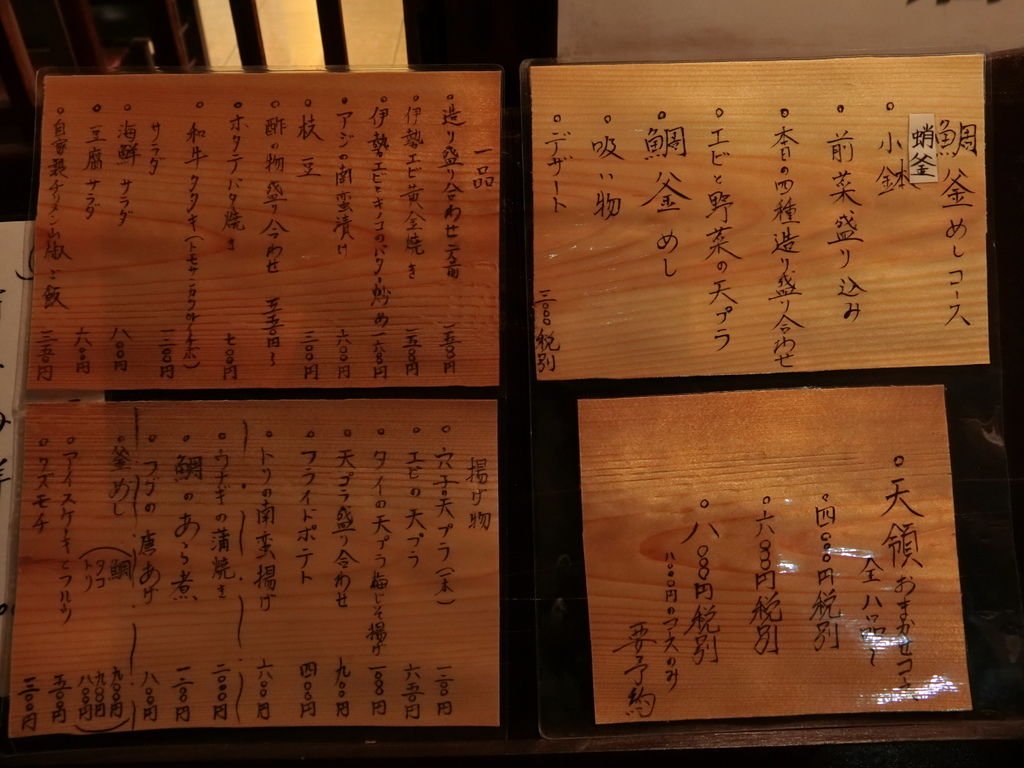 鯛釜めしコース
蛸釜
小鉢
前菜盛り込み
本日の四種造り盛り合わせ
エビと野菜の天プラ
鯛釜めし
吸い物
デザート
三〇〇〇税別
一品
造り盛り合わせ二人前
伊勢エビ黄金焼き
伊勢エビとキノコのバター炒め 一六〇〇円
アジの南蛮漬け 六〇〇円
枝豆 三〇〇円
酢の物盛り合わせ
ホタテバター焼き 七〇〇円
和牛タタキ
サラダ
海鮮サラダ 八〇〇円
豆腐サラダ 六〇〇円
自家製チリメン山椒と飯
天領おまかせコース
全八品〜
四〇〇〇円税別
六〇〇〇円税別
八〇〇〇円税別
八〇〇〇円のコースのみ
要予約
揚げ物
穴子天プラ(一本)
エビの天プラ 六五〇円
タイの天プラ梅じそ揚げ
天プラ盛り合わせ 九〇〇円
フライドポテト 四〇〇円
トリの南蛮揚げ 六〇〇円
ウナギの蒲焼き 二〇〇〇円
鯛のあら煮
フグの唐あげ 八〇〇円
釜めし(鯛 タコ トリ) 九〇〇円 九〇〇円 八〇〇円
アイスケーキとフルーツ 五〇〇円
クズモチ